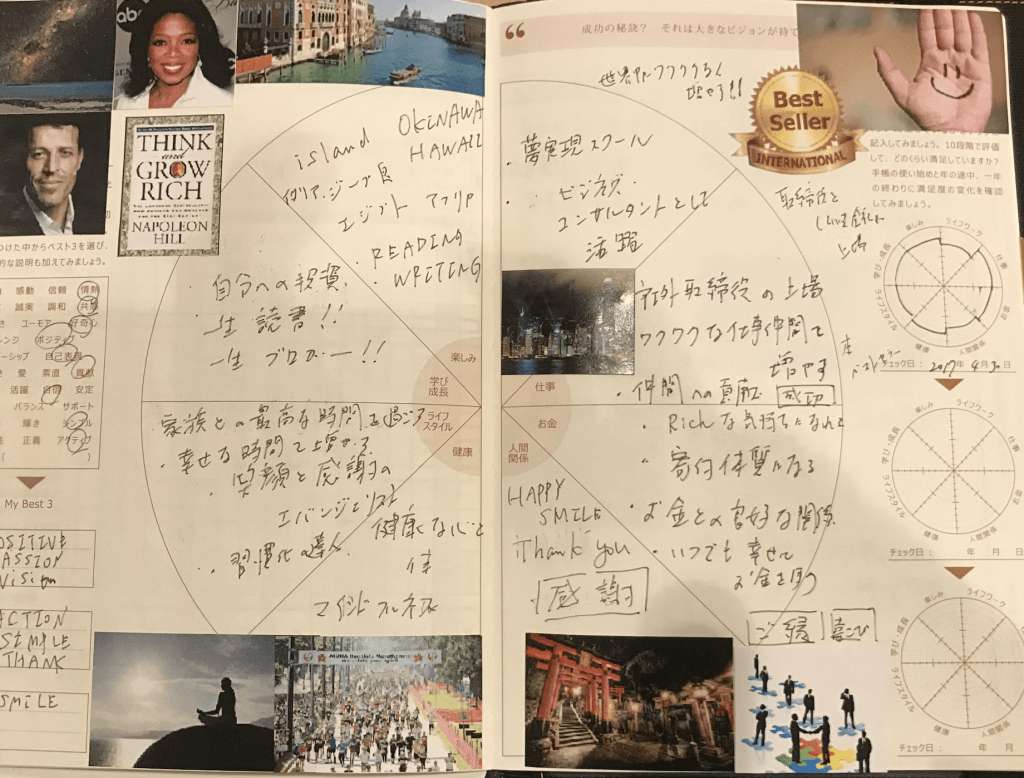 abc
THINK
and
GROW
RICH
NAPOLEON
HILL
つけた中からベスト3を選び、
的な説明も加えてみましょう。
感動 信頼 情熱
誠実 調和 共感
ユーモア 好奇心
ポジティブ
自己表現
愛 素直 貢献
活躍 自信 安定
バランス サポート
輝き シンプル
正義 アクティブ
My Best 3
POSITIVE
PASSION
Vision
ACTION
SIMPLE
THANK
SMILE
island
OKINAWA
HAWAII
エジプト アフリカ
READING
WRITING
自分への投資
一生 読書!!
一生 ブロガー!!
家族との最高な時間を過ごす
幸せな時間を増やす
笑顔と感謝の
エバンジェリスト
健康な心と
体
習慣化の達人
マインドフルネス
楽しみ
学び
成長
ライフ
スタイル
健康
仕事
お金
人間
関係
成功の秘訣? それは大きなビジョンが持て
世界中にワクワクを
増やす!!
Best
Seller
INTERNATIONAL
夢実現スクール
ビジネス
コンサルタントとして
活躍
取締役と
上場
社外取締役の上場
ワクワクな仕事仲間を
増やす
仲間への貢献 成功
Richな気持ちになれる
寄付体質になる
お金との良好な関係
いつでも幸せな
お金を
HAPPY
SMILE
Thank you
感謝
ご縁 喜び
記入してみましょう。10段階で評価
して、どのくらい満足していますか?
手帳の使い始めと年の途中、一年
の終わりに満足度の変化を確認
してみましょう。
楽しみ ライフワーク
学び・成長 仕事
ライフスタイル お金
健康 人間関係
チェック日: 2017年 4月30日
楽しみ ライフワーク
学び・成長 仕事
ライフスタイル お金
健康 人間関係
チェック日: 年 月 日
楽しみ ライフワーク
学び・成長 仕事
ライフスタイル お金
健康 人間関係
チェック日: 年 月 日